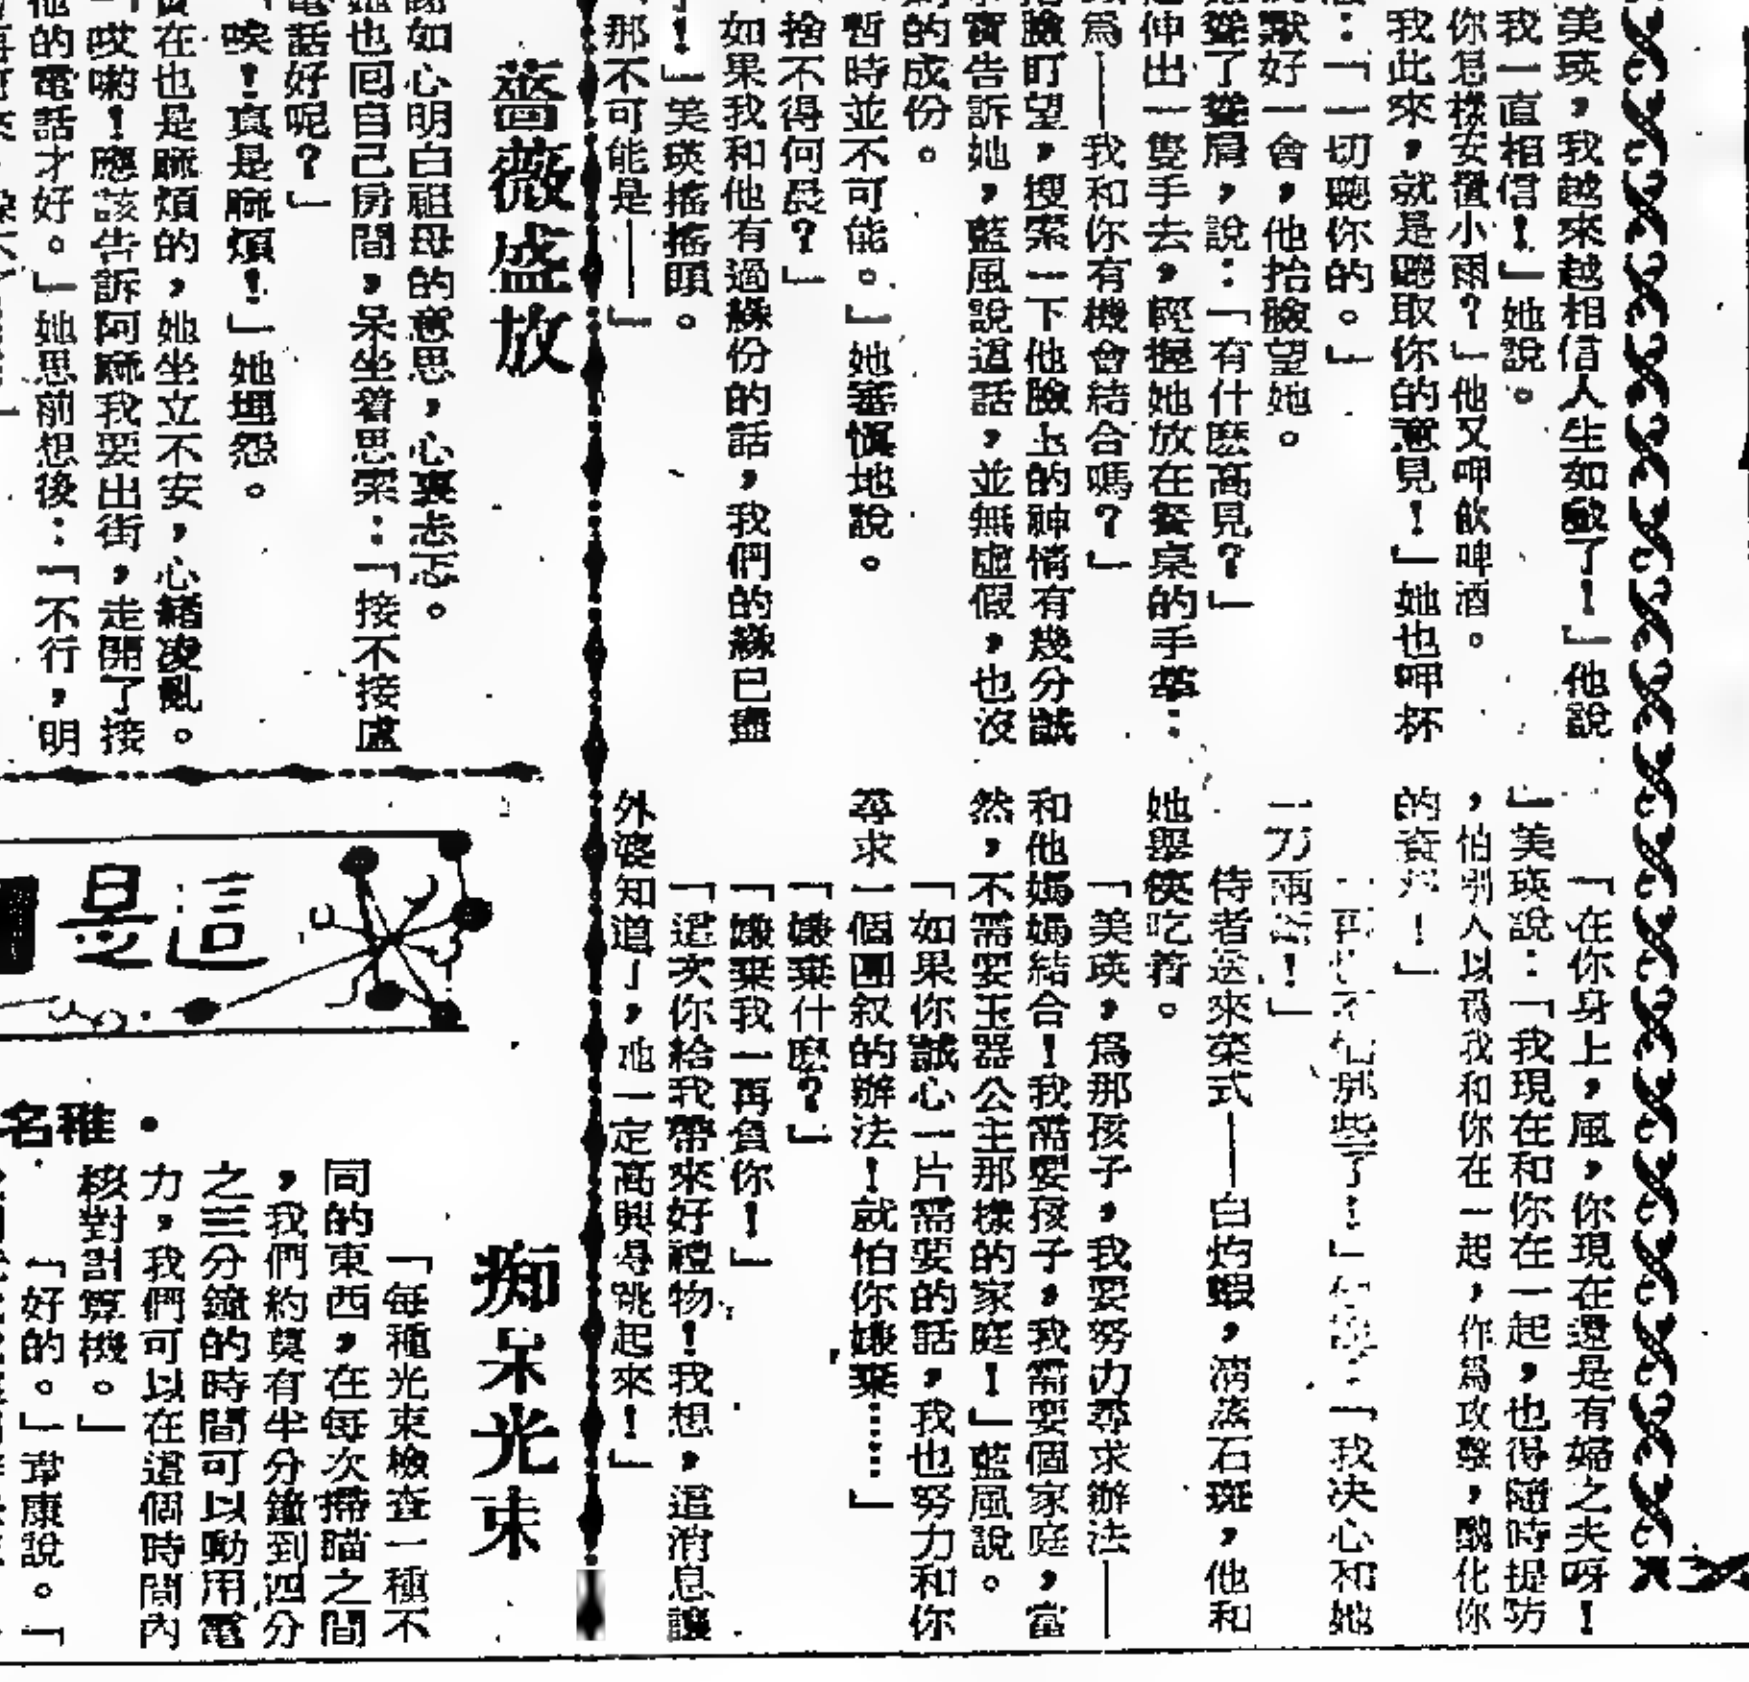 美瑛，我越來越相信人生如戲了！」他說
我一直相信！」她說。
你怎樣安置小雨？」他又呷飲啤酒。
我此來，就是聽取你的意見！」她也呷杯
：「一切聽你的。」
默好一會，他抬臉望她。
聳了聳肩，說：「有什麽高見？」
伸出一隻手去，輕握她放在餐桌的手掌：
爲——我和你有機會結合嗎？」
臉盯望，搜索一下他臉上的神情有幾分誠
實告訴她，藍風說這話，並無虛假，也沒
的成份。
暫時並不可能。」她審慎地說。
捨不得何晨？」
如果我和他有過緣份的話，我們的緣已盡
！」美瑛搖搖頭。
那不可能是——」
「在你身上，風，你現在還是有婦之夫呀！
」美瑛說：「我現在和你在一起，也得隨時提防
，怕別人以爲我和你在一起，作爲攻擊，醜化你
的資料！」
那些了！」「我决心和她
一刀兩斷！」
侍者送來菜式——白灼蝦，清蒸石斑，他和
她舉筷吃着。
「美瑛，爲那孩子，我要努力尋求辦法——
和他媽媽結合！我需要孩子，我需要個家庭，當
然，不需要玉器公主那樣的家庭！」藍風說。
「如果你誠心一片需要的話，我也努力和你
尋求一個團叙的辦法！就怕你嫌棄……」
「嫌棄什麽？」
「嫌棄我一再負你！」
「這次你給我帶來好禮物！我想，這消息讓
外婆知道了，她一定高興得跳起來！」
薔薇盛放
如心明白祖母的意思，心裏忐忑。
她也囘自己房間，呆坐着思索：「接不接盧
電話好呢？」
「唉！真是麻煩！」她埋怨。
實在也是麻煩的，她坐立不安，心緒凌亂。
「哎喲！應該告訴阿麻我要出街，走開了接
他的電話才好。」她思前想後：「不行，明
這是
·稚名
痴呆光束
「每種光束檢查一種不
同的東西，在每次掃瞄之間
，我們約莫有半分鐘到四分
之三分鐘的時間可以動用電
力，我們可以在這個時間內
核對計算機。」
「好的。」韋康說。「